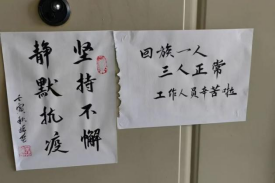 坚持不懈
静默抗疫
壬寅秋
回族一人
三人正常
工作人员辛苦啦